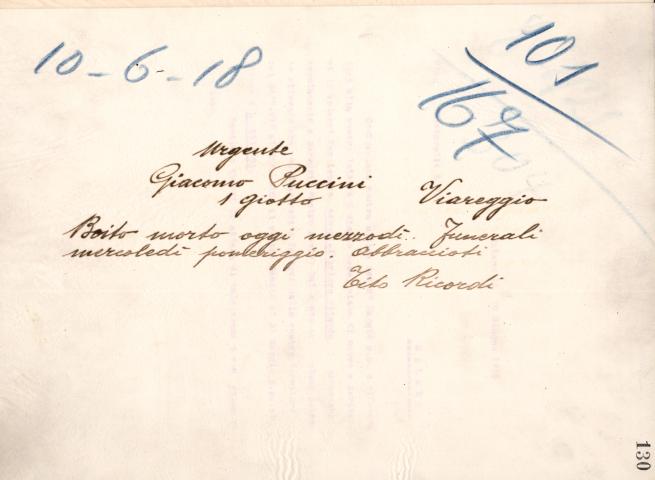 10-6-18
101
167
Urgente
Giacomo Puccini
1 giotto Viareggio
Boito morto oggi mezzodì. Funerali
mercoledì pomeriggio. Abbraccioti
Tito Ricordi
130